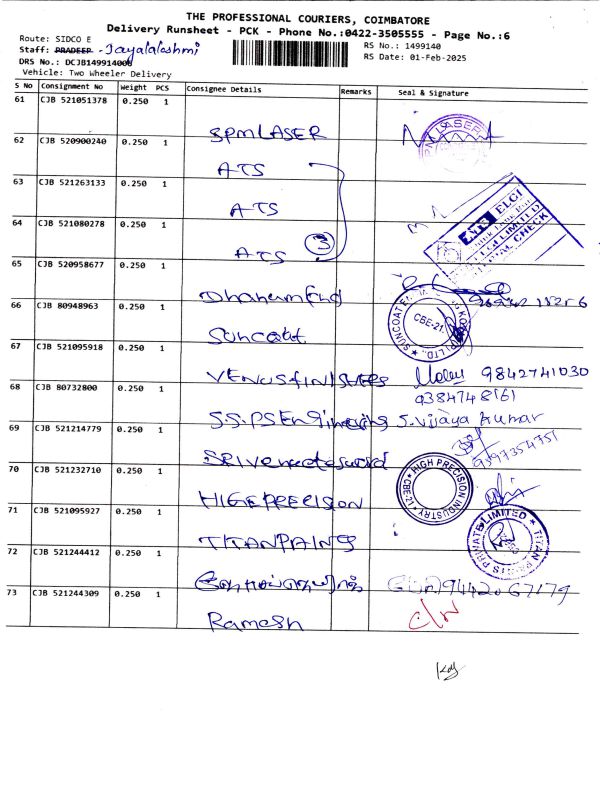 THE PROFESSIONAL COURIERS, COIMBATORE
Delivery Runsheet - PCK - Phone No.:0422-3505555 - Page No.:6
Route: SIDCO E
RS No.: 1499140
Staff: PRADEEP - Jayalalashmi
RS Date: 01-Feb-2025
DRS No.: DCJB149914006
Vehicle: Two Wheeler Delivery
S No Consignment No Weight PCS Consignee Details Remarks Seal & Signature
61 CJB 521051378 0.250 1
SPM LASER
62 CJB 520900240 0.250 1
ATS
63 CJB 521263133 0.250 1
ATS
64 CJB 521080278 0.250 1
ATS 3
ELGI
65 CJB 520958677 0.250 1
66 CJB 80948963 0.250 1
Suncoat
CBE-21.
67 CJB 521095918 0.250 1
VENUS FINISHERS 9842741030
68 CJB 80732800 0.250 1
9384748161
S.S.P.S Engineering S. Vijaya Kumar
69 CJB 521214779 0.250 1
9597354751
70 CJB 521232710 0.250 1
HIGH PRECISION INDUSTRY
HIGEPRECISION
71 CJB 521095927 0.250 1
TITANPAINTS
PRIVATE LIMITED
72 CJB 521244412 0.250 1
73 CJB 521244309 0.250 1
Ramesh